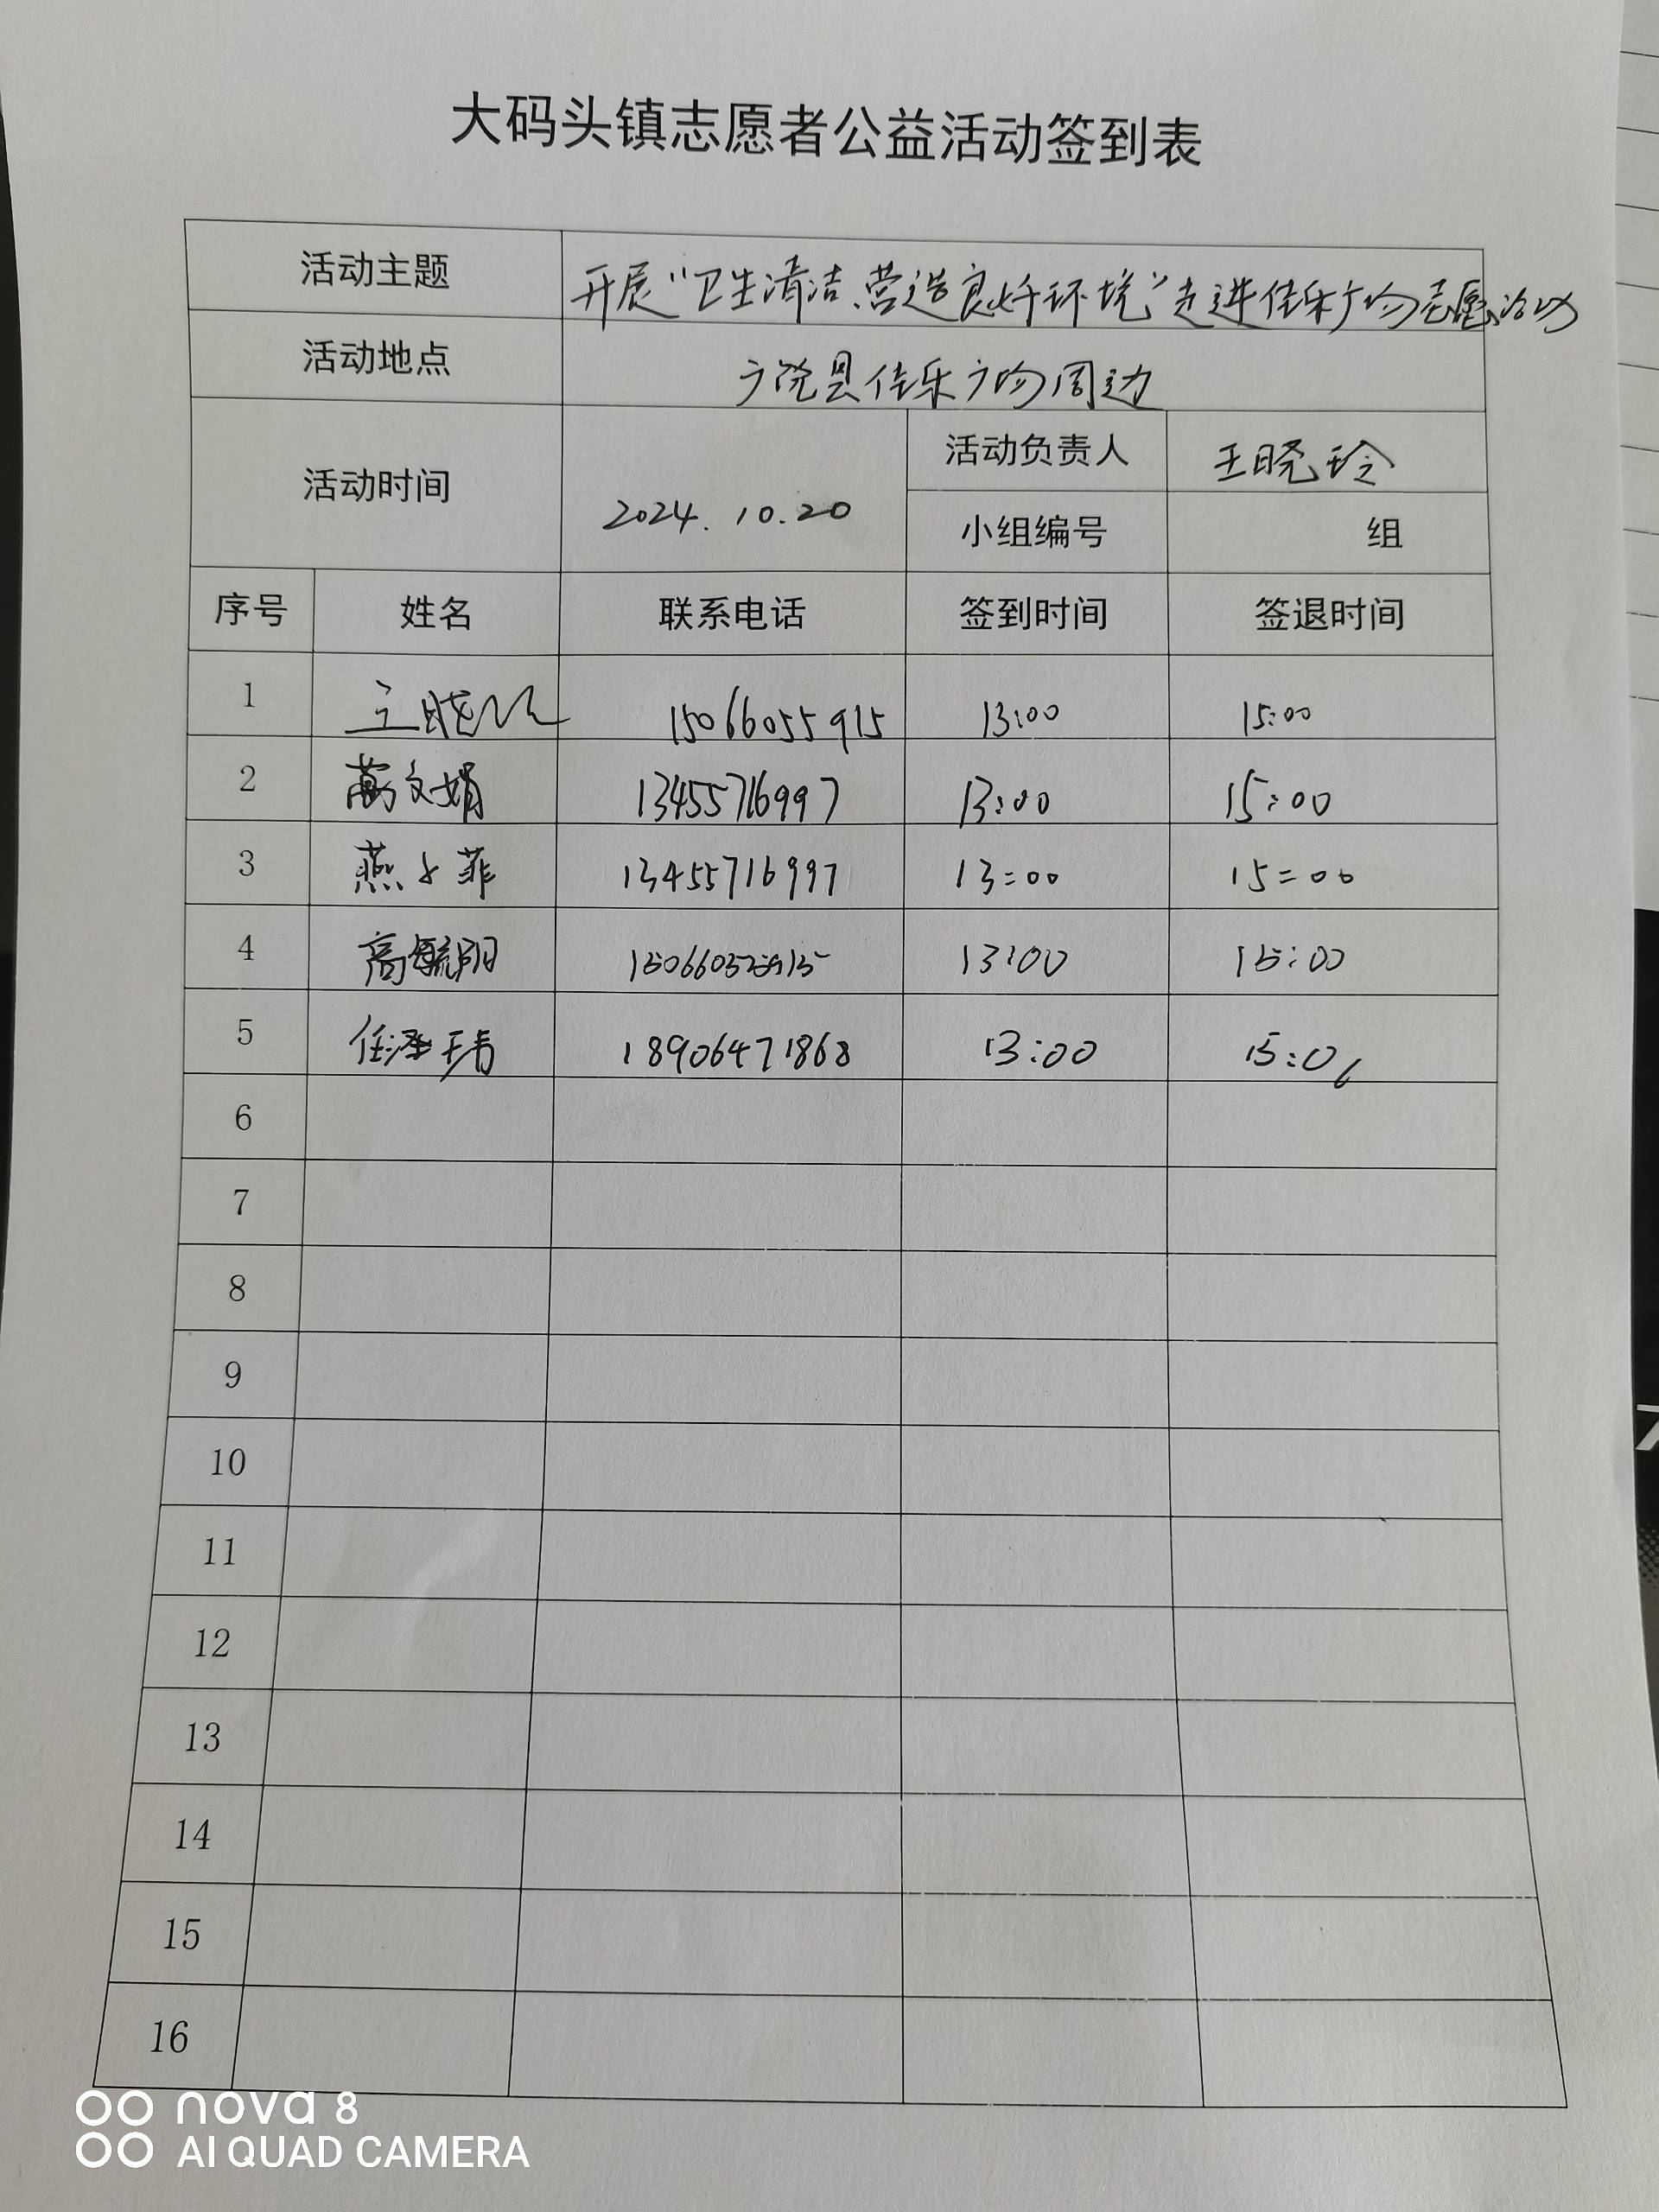 大码头镇志愿者公益活动签到表
活动主题 开展“卫生清洁、营造良好环境”走进佳乐广场志愿活动
活动地点 广饶县佳乐广场周边
活动时间 2024.10.20 活动负责人 王晓玲
小组编号 组
序号 姓名 联系电话 签到时间 签退时间
1 王晓玲 15066055915 13:00 15:00
2 文娟 13455716997 13:00 15:00
3 燕 菲 13455716997 13:00 15:00
4 高毓阳 13:00 15:00
5 任泽玮 18906471868 13:00 15:00
6
7
8
9
10
11
12
13
14
15
16
nova 8
AI QUAD CAMERA